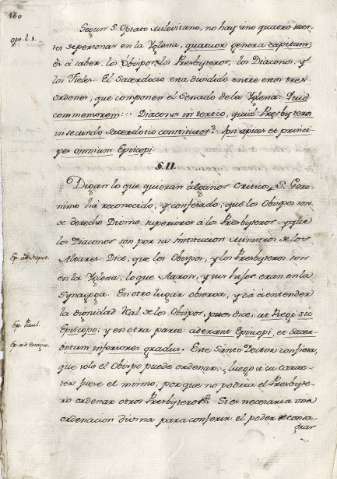 180
Segun S. Optato Milevitano, no hay sino quatro suer-
tes de personas en la Yglesia, quatuor genera capitum;
es á saber, los Obispos, los Presbyteros, los Diaconos, y
los Fieles. El Sacerdocio era dividido entre estos tres
ordenes, que componen el Senado de la Yglesia. Quid
commemorem ... Diaconos in tertio, quid Presbyteros
in secundo Sacerdotio constitutos? Ipsi apices et princi-
pes omnium Episcopi.
§. II.
Digan lo que quieran algunos Criticos, S. Gero-
nimo há reconocido, y confesado, que los Obispos son
de derecho Divino superiores á los Presbyteros, y que
los Diaconos son por su institucion ministros de los
Altares. Dice, que los Obispos, y los Presbyteros son
en la Yglesia, lo que Aaron, y sus hijos eran en la
Synagoga. En otro lugar observa, y dá á entender
la dignidad Real de los Obispos, pues dice,
Episcopo, y en otra parte: aderant Episcopi, et Sacer-
dotum inferioris gradus. Este Santo Doctor confiesa,
que solo el Obispo puede ordenar; luego su carac-
ter no es el mismo, porque no podria el Presbyte-
ro ordenar otros Presbyteros. Si es necesaria una
ordenacion divina para conferir el poder de consa-
grar